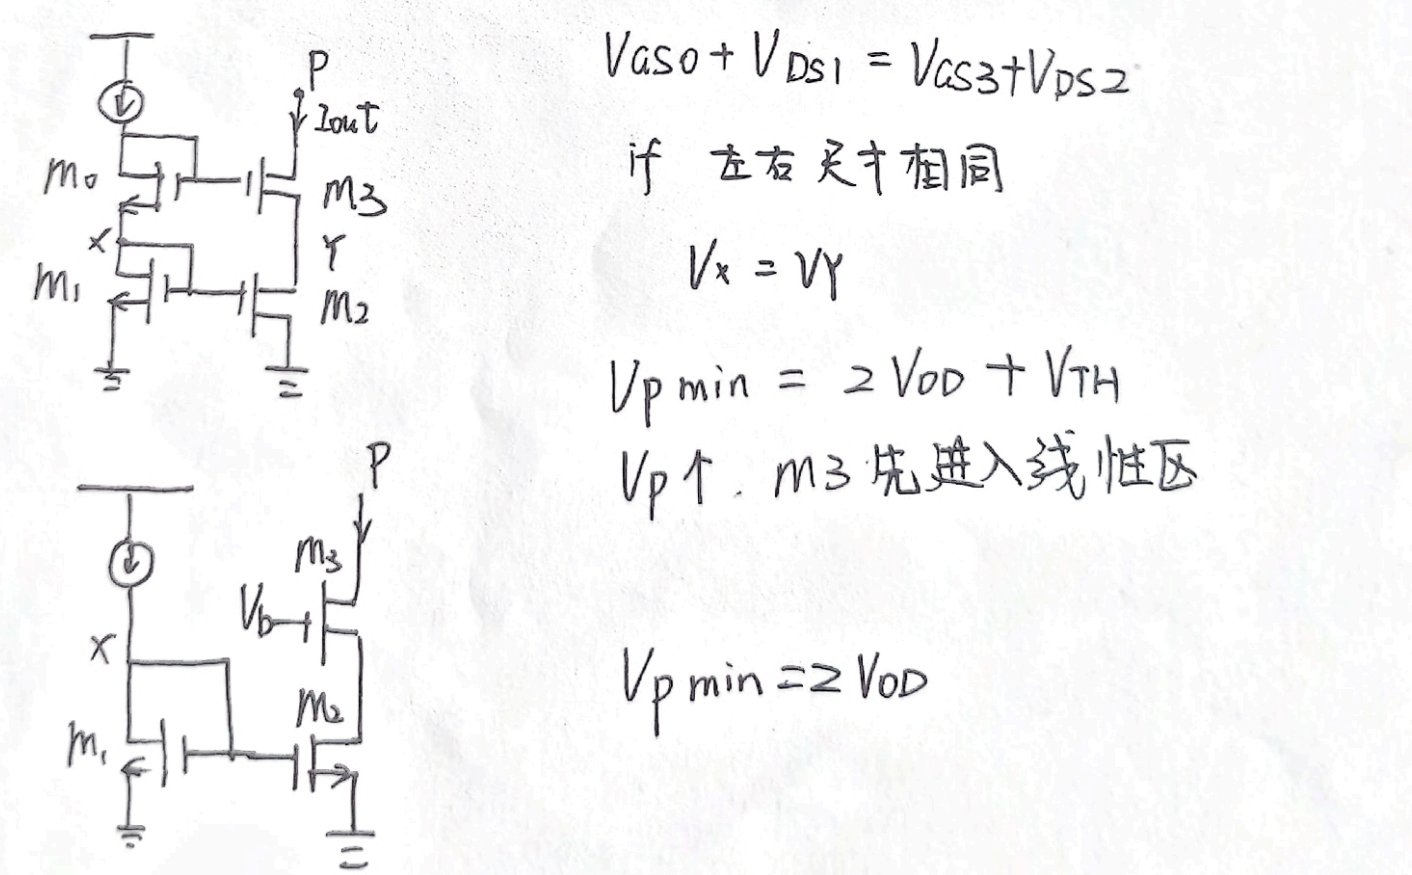 P
Iout
M0
M3
X
Y
M1
M2
VGS0 + VDS1 = VGS3+VDS2
if 左右尺寸相同
Vx = VY
Vp min = 2 VOD + VTH
Vp↑. M3 先进入线性区
P
M3
Vb
X
M2
M1
Vp min = 2 VOD